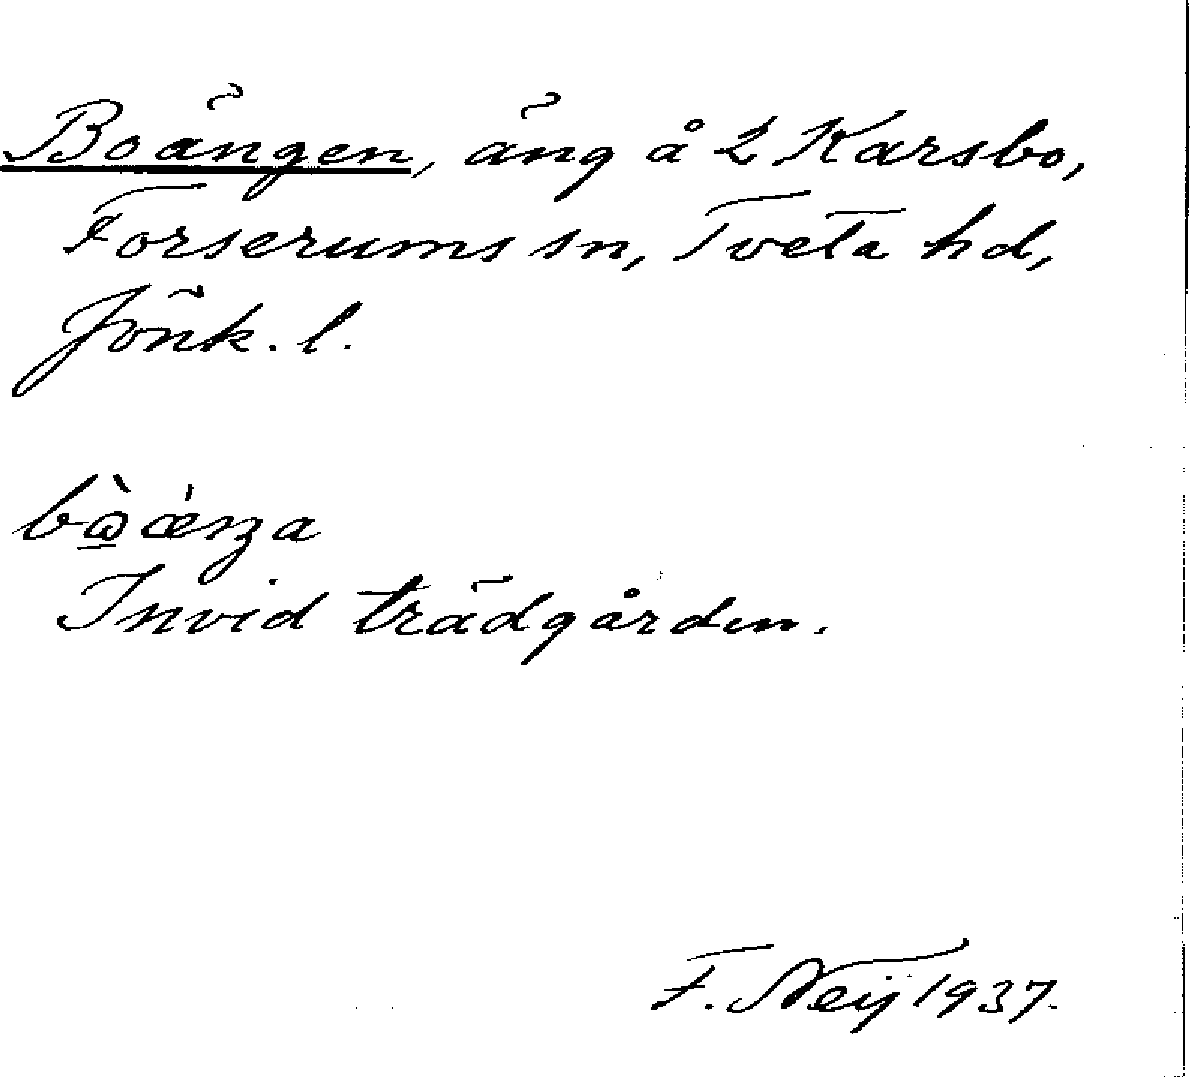 Boängen, äng å 2 Karsbo,
Forserums sn, Tveta hd,
Jönk. l.
bò̲ǽŋa
Invid trädgården.
F. Neij 1937.